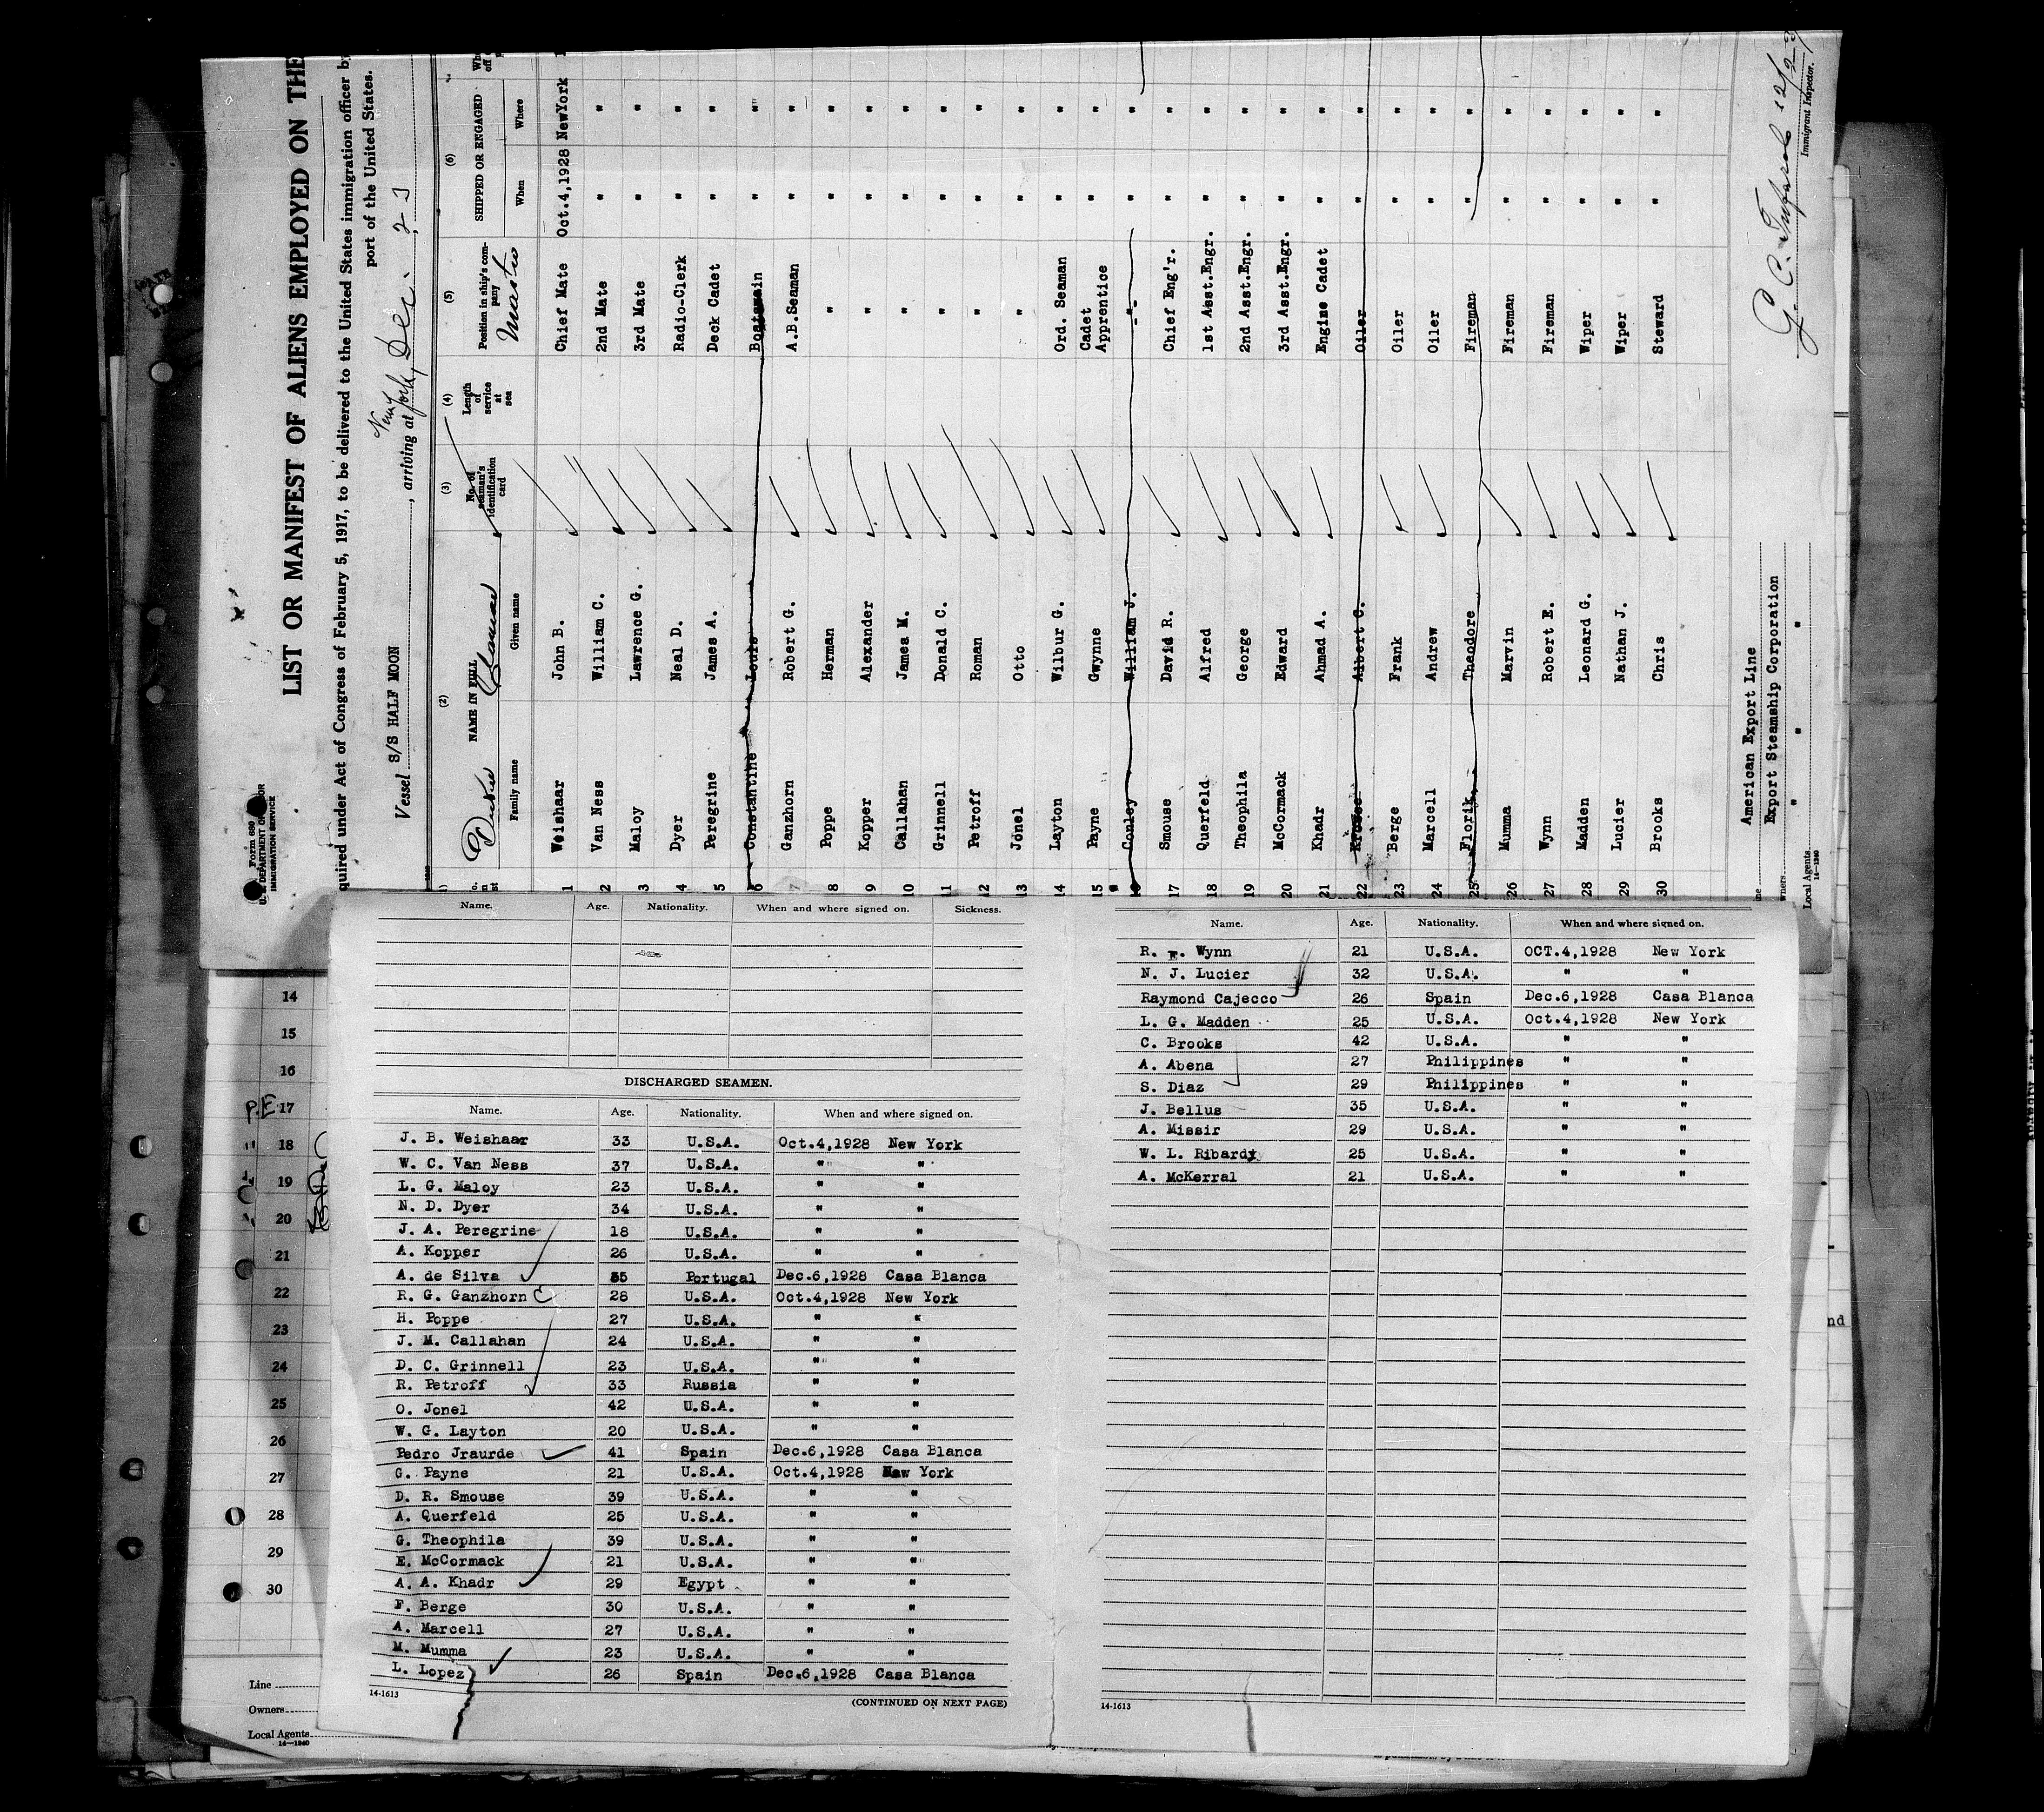 Form 680
U. S. DEPARTMENT OF LABOR
IMMIGRATION SERVICE
LIST OR MANIFEST OF ALIENS EMPLOYED ON THE
quired under Act of Congress of February 5, 1917, to be delivered to the United States immigration officer by
port of the United States.
Vessel S/S HALF MOON, arriving at New York, Dec. 23
(2) (3) (4) (5) (6)
NAME IN FULL No. of seaman's identification card Length of service at sea Position in ship's company SHIPPED OR ENGAGED
Family name Given name When Where
Master
1 Weishaar John B. Chief Mate Oct.4,1928 NewYork
2 Van Ness William C. 2nd Mate " "
3 Maloy Lawrence G. 3rd Mate " "
4 Dyer Neal D. Radio-Clerk " "
5 Peregrine James A. Deck Cadet " "
6 Constantine Louis Boatswain " "
7 Ganzhorn Robert G. A.B.Seaman " "
8 Poppe Herman " " "
9 Kopper Alexander " " "
10 Callahan James M. " " "
11 Grinnell Donald C. " " "
12 Petroff Roman " " "
13 Jonel Otto " " "
14 Layton Wilbur G. Ord. Seaman " "
15 Payne Gwynne Cadet Apprentice " "
16 Conley William J. -"- " "
17 Smouse David R. Chief Eng'r. " "
18 Querfeld Alfred 1st Asst.Engr. " "
19 Theophila George 2nd Asst.Engr. " "
20 McCormack Edward 3rd Asst.Engr. " "
21 Khadr Ahmad A. Engine Cadet " "
22 Albert C. Oiler " "
23 Berge Frank Oiler " "
24 Marcell Andrew Oiler " "
25 Florik Theodore Fireman " "
26 Mumma Marvin Fireman " "
27 Wynn Robert E. Fireman " "
28 Madden Leonard G. Wiper " "
29 Lucier Nathan J. Wiper " "
30 Brooks Chris Steward " "
American Export Line
Export Steamship Corporation
Local Agents " " "
14—1240
Immigrant Inspector.
Name. Age. Nationality. When and where signed on. Sickness.
DISCHARGED SEAMEN.
Name. Age. Nationality. When and where signed on.
J. B. Weishaar 33 U.S.A. Oct.4,1928 New York
W. C. Van Ness 37 U.S.A. " "
L. G. Maloy 23 U.S.A. " "
N. D. Dyer 34 U.S.A. " "
J. A. Peregrine 18 U.S.A. " "
A. Kopper 26 U.S.A. " "
A. de Silva 35 Portugal Dec.6,1928 Casa Blanca
R. G. Ganzhorn 28 U.S.A. Oct.4,1928 New York
H. Poppe 27 U.S.A. " "
J. M. Callahan 24 U.S.A. " "
D. C. Grinnell 23 U.S.A. " "
R. Petroff 33 Russia " "
O. Jonel 42 U.S.A. " "
W. G. Layton 20 U.S.A. " "
Pedro Jraurde 41 Spain Dec.6,1928 Casa Blanca
G. Payne 21 U.S.A. Oct.4,1928 New York
D. R. Smouse 39 U.S.A. " "
A. Querfeld 25 U.S.A. " "
G. Theophila 39 U.S.A. " "
E. McCormack 21 U.S.A. " "
A. A. Khadr 29 Egypt " "
F. Berge 30 U.S.A. " "
A. Marcell 27 U.S.A. " "
M. Mumma 23 U.S.A. " "
L. Lopez 26 Spain Dec.6,1928 Casa Blanca
14-1613
(CONTINUED ON NEXT PAGE)
Name. Age. Nationality. When and where signed on.
R. E. Wynn 21 U.S.A. OCT.4,1928 New York
N. J. Lucier 32 U.S.A. " "
Raymond Cajecco 26 Spain Dec.6,1928 Casa Blanca
L. G. Madden 25 U.S.A. Oct.4,1928 New York
C. Brooks 42 U.S.A. " "
A. Abena 27 Philippines " "
S. Diaz 29 Philippines " "
J. Bellus 35 U.S.A. " "
A. Missir 29 U.S.A. " "
W. L. Ribardy 25 U.S.A. " "
A. McKerral 21 U.S.A. " "
14-1613
14
15
16
P.E 17
18
19
20
21
22
23
24
25
26
27
28
29
30
Line
Owners
Local Agents
14—1240
nd